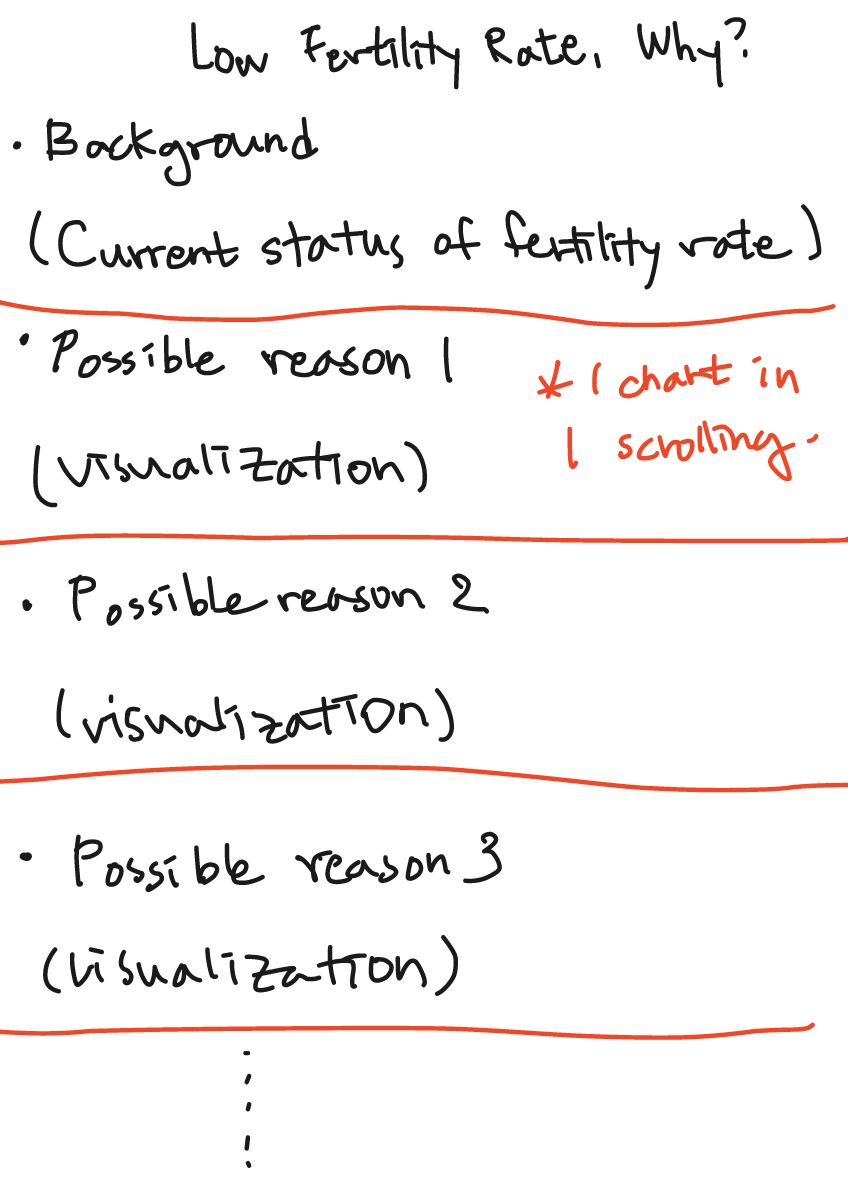 Low Fertility Rate, Why?
• Background
(Current status of fertility rate)
• Possible reason 1
* 1 chart in
1 scrolling.
(visualization)
• Possible reason 2
(visualization)
• Possible reason 3
(visualization)